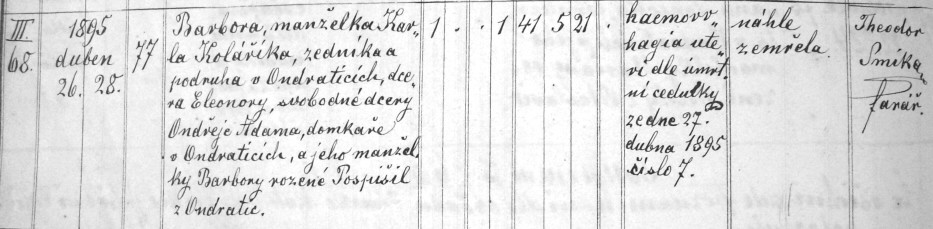 III.
68.
1895
duben
26. 28.
77
Barbora, manželka Kar-
la Kolaříka, zedníka a
podruha v Ondraticích, dce-
ra Eleonory, svobodné dcery
Ondřeje Adama, domkaře
v Ondraticích, a jeho manžel-
ky Barbory rozené Pospíšil
z Ondratic.
1 . . 1 41 5 21.
haemorr-
hagia ute-
ri dle úmrt-
ní cedulky
ze dne 27.
dubna 1895
číslo 7.
náhle
zemřela.
Theodor
Smika,
farář.